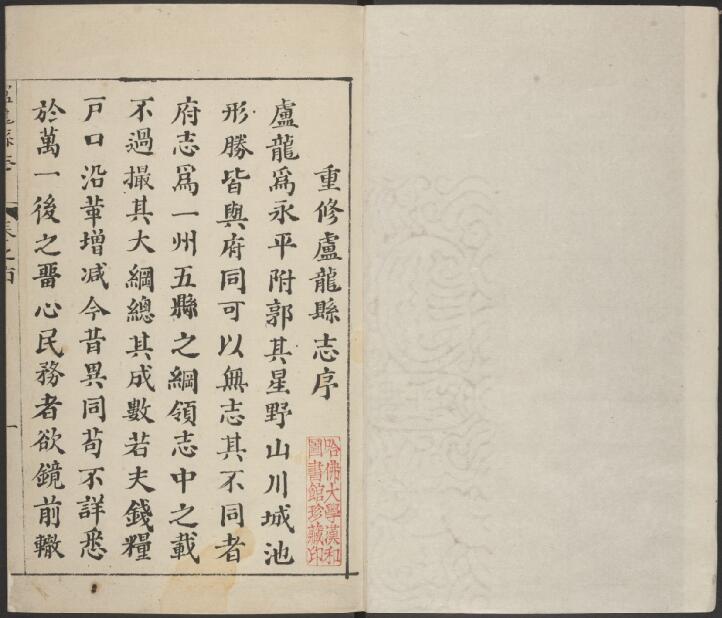 重修盧龍縣志序
盧龍爲永平附郭其星野山川城池
形勝皆與府同可以無志其不同者
府志爲一州五縣之綱領志中之載
不過撮其大綱總其成數若夫錢糧
戸口沿革增减今昔異同苟不詳悉
於萬一後之畱心民務者欲鏡前轍
哈佛大學漢和
圖書館珍藏印
一